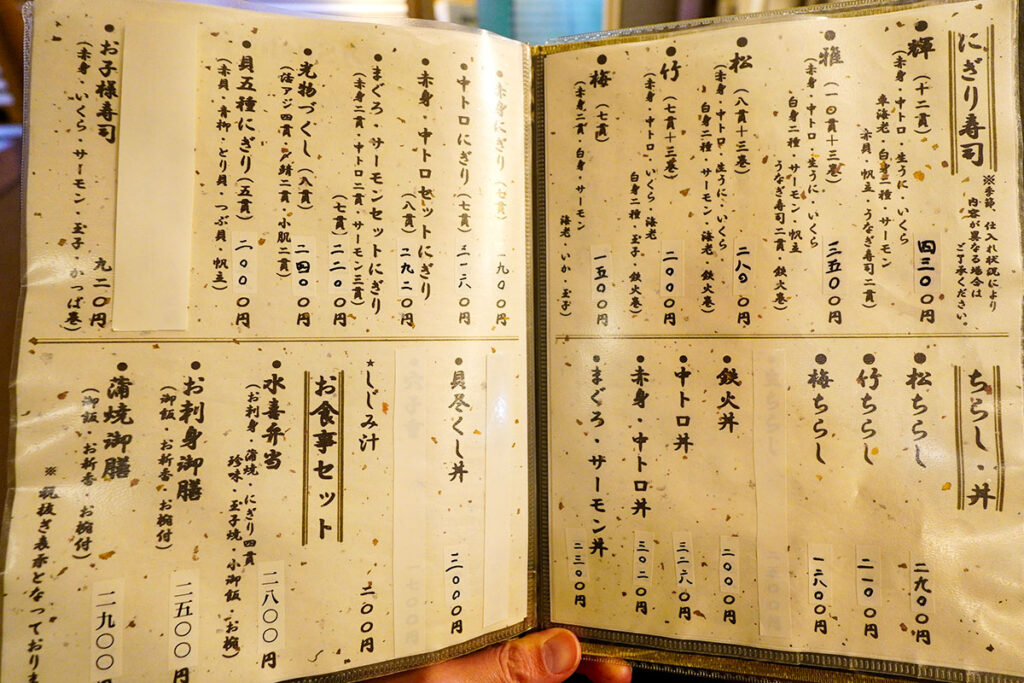 にぎり寿司
※季節、仕入れ状況により
内容が異なる場合は
ご了承ください。
●輝(十二貫) 四三〇〇円
(赤身・中トロ・生うに・いくら
車海老・白身二種・サーモン
赤貝・帆立・うなぎ寿司二貫)
●雅(一〇貫十三巻) 三五〇〇円
(赤身・中トロ・生うに・いくら
白身二種・サーモン・帆立
うなぎ寿司二貫・鉄火巻)
●松(八貫十三巻) 二八〇〇円
(赤身・中トロ・生うに・いくら
白身二種・サーモン・海老・鉄火巻)
●竹(七貫十三巻) 二〇〇〇円
(赤身・中トロ・いくら・海老
白身二種・玉子・鉄火巻)
●梅(七貫) 一五〇〇円
(赤身二貫・白身・サーモン
海老・いか・玉子)
ちらし・丼
●松ちらし 二九〇〇円
●竹ちらし 二一〇〇円
●梅ちらし 一六〇〇円
●鉄火丼 二〇〇〇円
●中トロ丼 三二六〇円
●赤身・中トロ丼 三〇二〇円
●まぐろ・サーモン丼 二三〇〇円
●赤身にぎり(七貫) 一九〇〇円
●中トロにぎり(七貫) 三一六〇円
●赤身・中トロセットにぎり
(八貫) 二九二〇円
●まぐろ・サーモンセットにぎり
(赤身二貫・中トロ二貫・サーモン三貫)
(七貫) 二二〇〇円
●光物づくし(八貫) 二四〇〇円
(活アジ四貫・〆鯖二貫・小肌二貫)
●貝五種にぎり(五貫) 二〇〇〇円
(赤貝・青柳・とり貝・つぶ貝・帆立)
●お子様寿司 九二〇円
(赤身・いくら・サーモン・玉子・かっぱ巻)
●貝尽くし丼 三〇〇〇円
★しじみ汁 二〇〇円
お食事セット
●水喜弁当 二八〇〇円
(お刺身・蒲焼・にぎり四貫
珍味・玉子焼・小御飯・お椀)
●お刺身御膳 二五〇〇円
(御飯・お新香・お椀付)
●蒲焼御膳 二九〇〇円
(御飯・お新香・お椀付)
※税抜き表示となっておりま